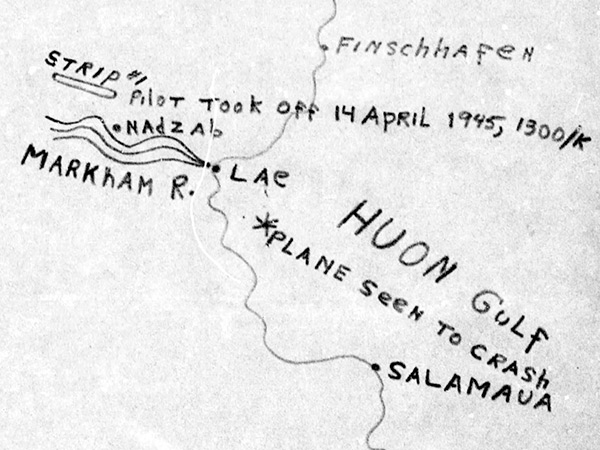 FINSCHHAFEN
STRIP #1
PILOT TOOK OFF 14 APRIL 1945, 1300/K
NADZAB
MARKHAM R.
LAE
HUON GULF
PLANE SEEN TO CRASH
SALAMAUA